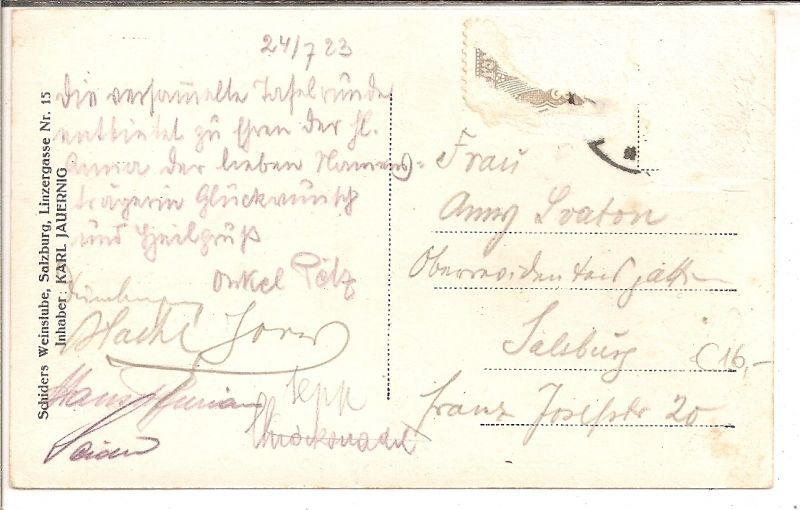 24/7 23
Die versam̅elte Tafelrunde
entbietet zu Ehren der hl.
Anna der lieben Namens=
trägerin Glückwunsch
und Heilgruß
Onkel Pötz
Hans
Sepp
Schiders Weinstube, Salzburg, Linzergasse Nr. 15
Inhaber: KARL JAUERNIG
Frau
Anny Svaton
Oberrevidentens
Salzburg
Franz Josefstr 20
16,-